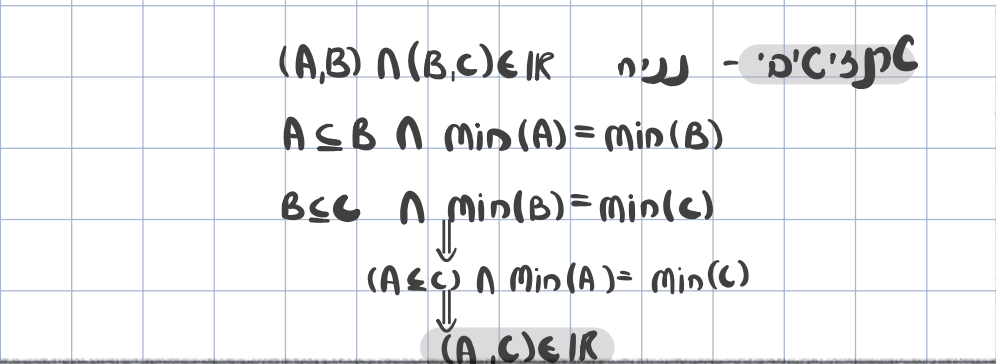 טרנזיטיבי - נניח (A,B) ∩ (B,C) ∈ ℝ
A ⊆ B ∩ min(A) = min(B)
B ⊆ C ∩ min(B) = min(C)
⇓
(A ⊆ C) ∩ min(A) = min(C)
⇓
(A,C) ∈ ℝ